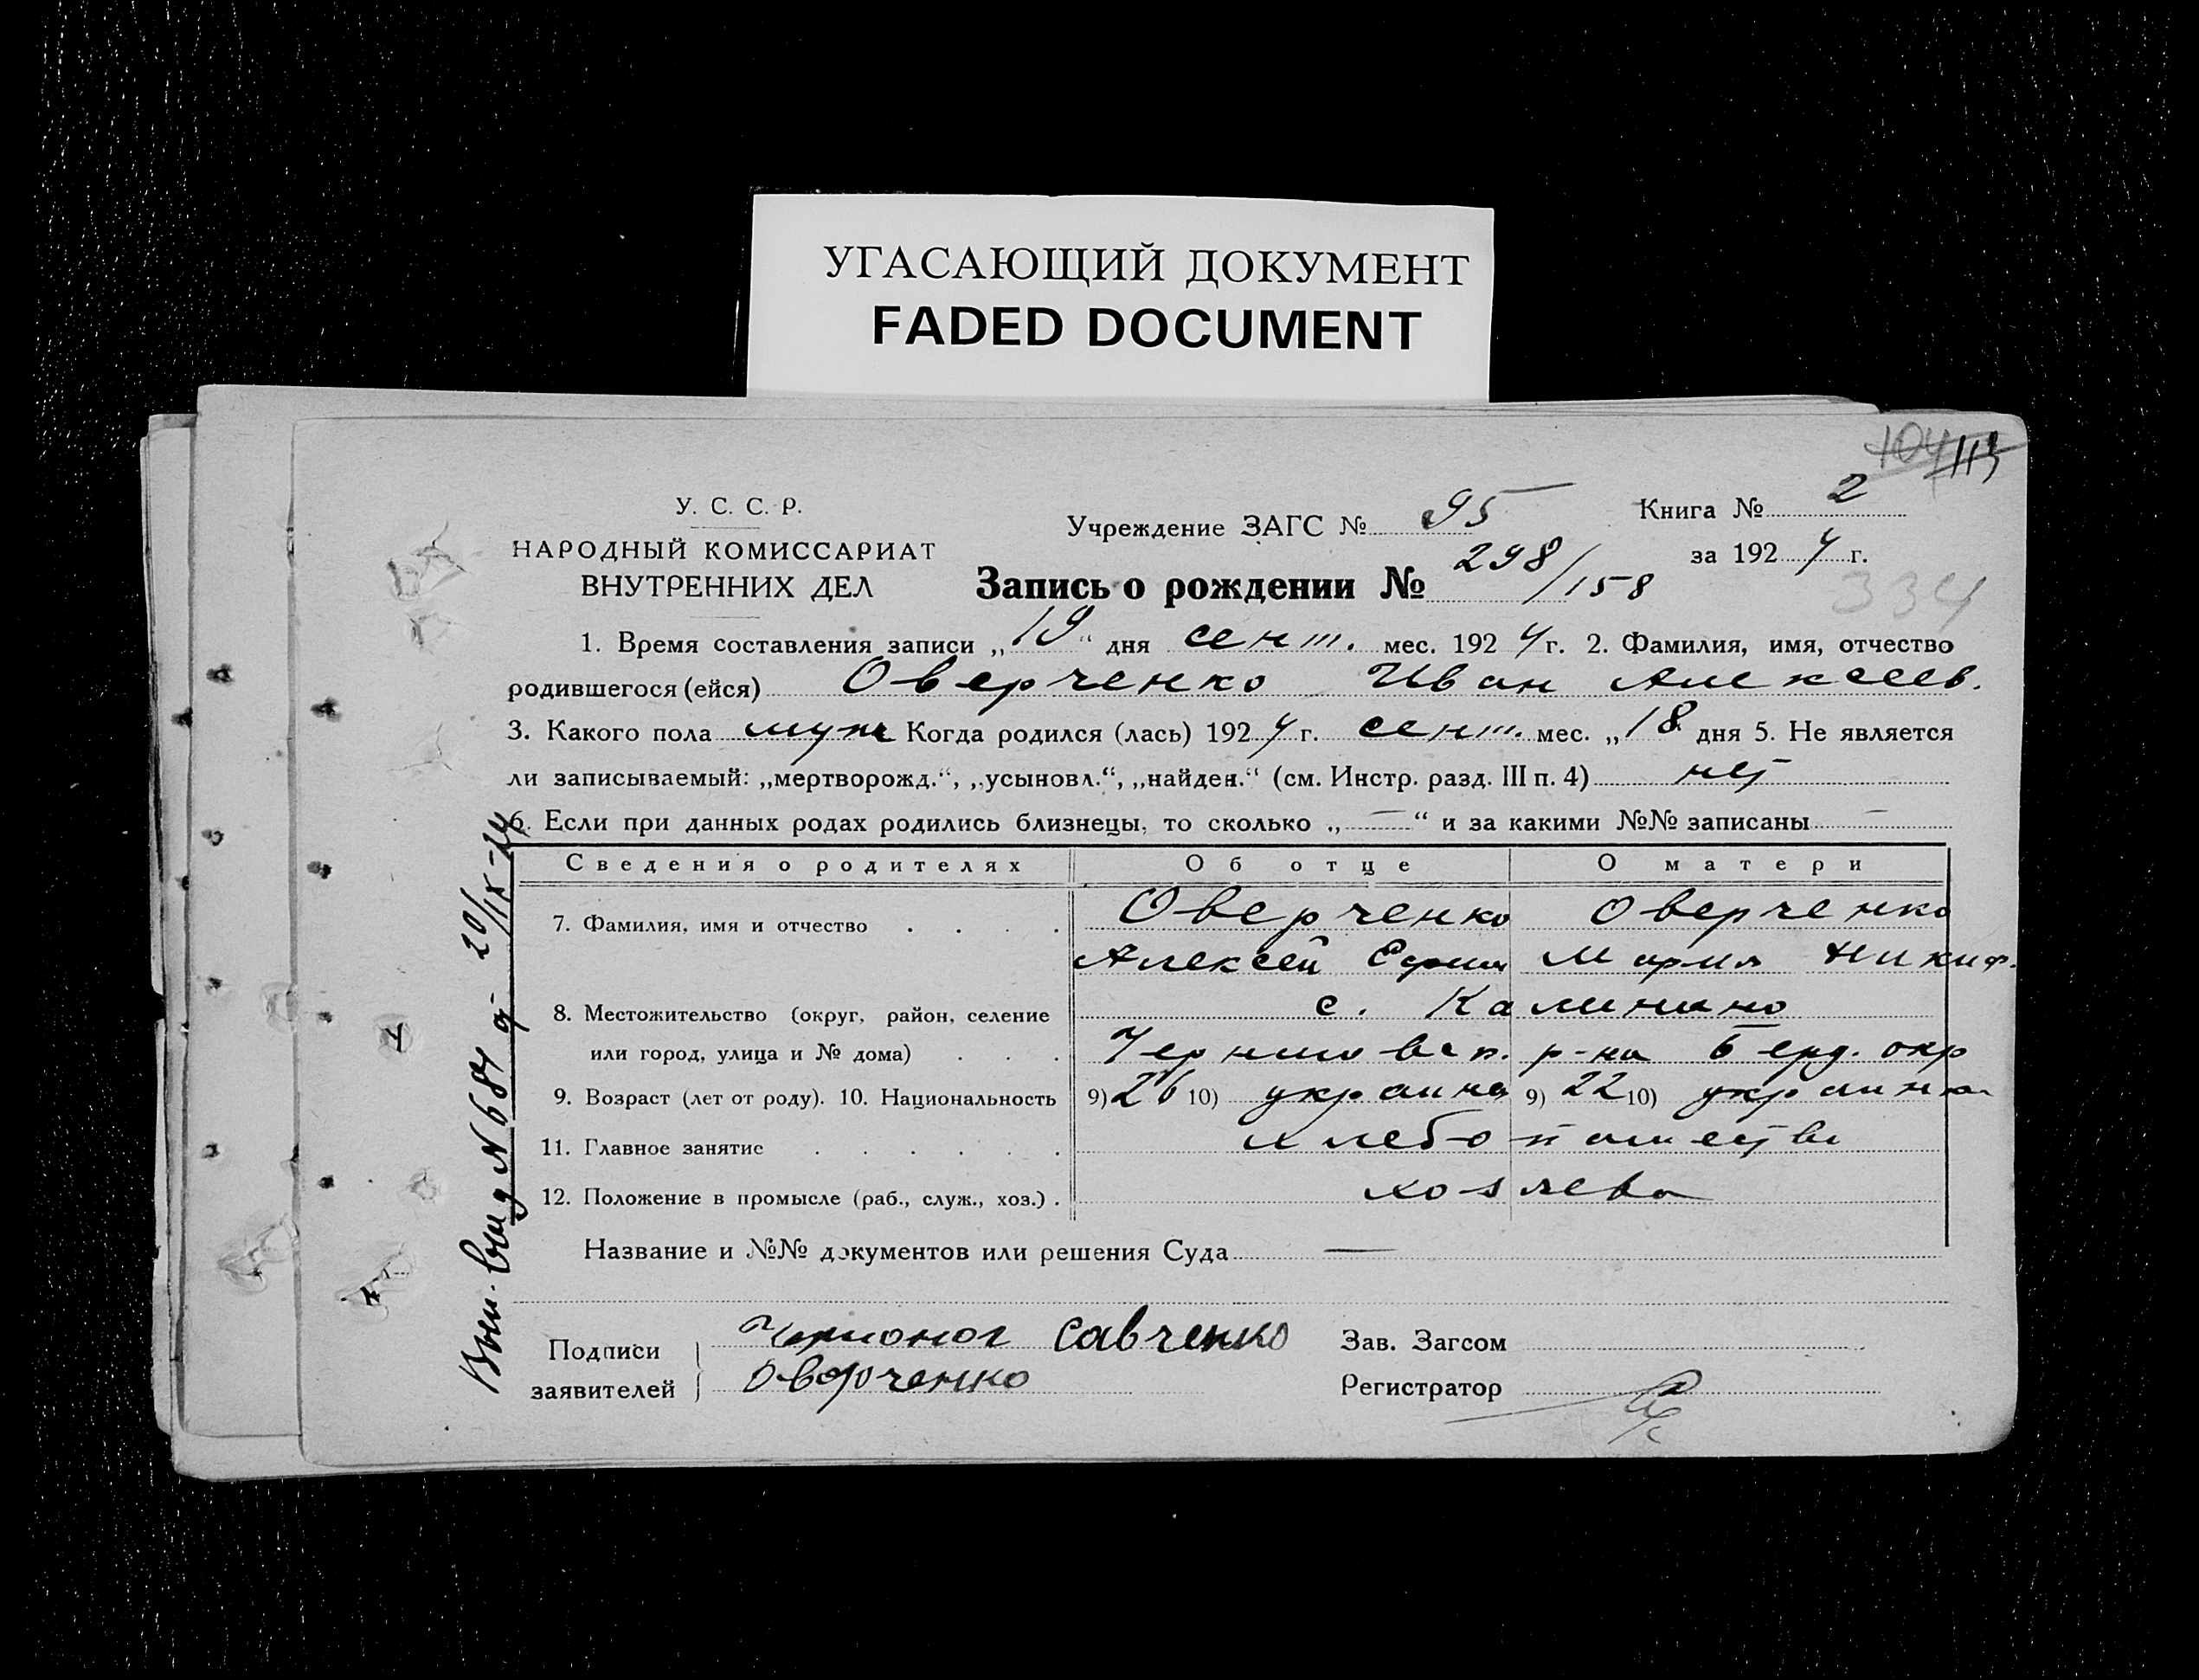 УГАСАЮЩИЙ ДОКУМЕНТ
FADED DOCUMENT
104 113
У. С. С. Р.
НАРОДНЫЙ КОМИССАРИАТ
ВНУТРЕННИХ ДЕЛ
Учреждение ЗАГС № 95
Книга № 2
за 1924 г.
Запись о рождении № 298/158
334
1. Время составления записи „19“ дня сент. мес. 1924 г. 2. Фамилия, имя, отчество
родившегося (ейся) Оверченко Иван Алексеев.
3. Какого пола муж Когда родился (лась) 1924 г. сент. мес. „18 дня 5. Не является
ли записываемый: „мертворожд.“, „усыновл.“, „найден.“ (см. Инстр. разд. III п. 4) нет
6. Если при данных родах родились близнецы, то сколько „—“ и за какими №№ записаны —
Сведения о родителях Об отце О матери
7. Фамилия, имя и отчество Оверченко Оверченко
Алексей Ефим Мария Никиф.
8. Местожительство (округ, район, селение с. Калинино
или город, улица и № дома) р-на Берд. окр
9. Возраст (лет от роду). 10. Национальность 9) 26 10) украина 9) 22 10) украинка
11. Главное занятие хлебопашество
12. Положение в промысле (раб., служ., хоз.) хозяева
Название и №№ документов или решения Суда —
Подписи
заявителей
Савченко
Оверченко
Зав. Загсом
Регистратор
N 684 20/IX-24